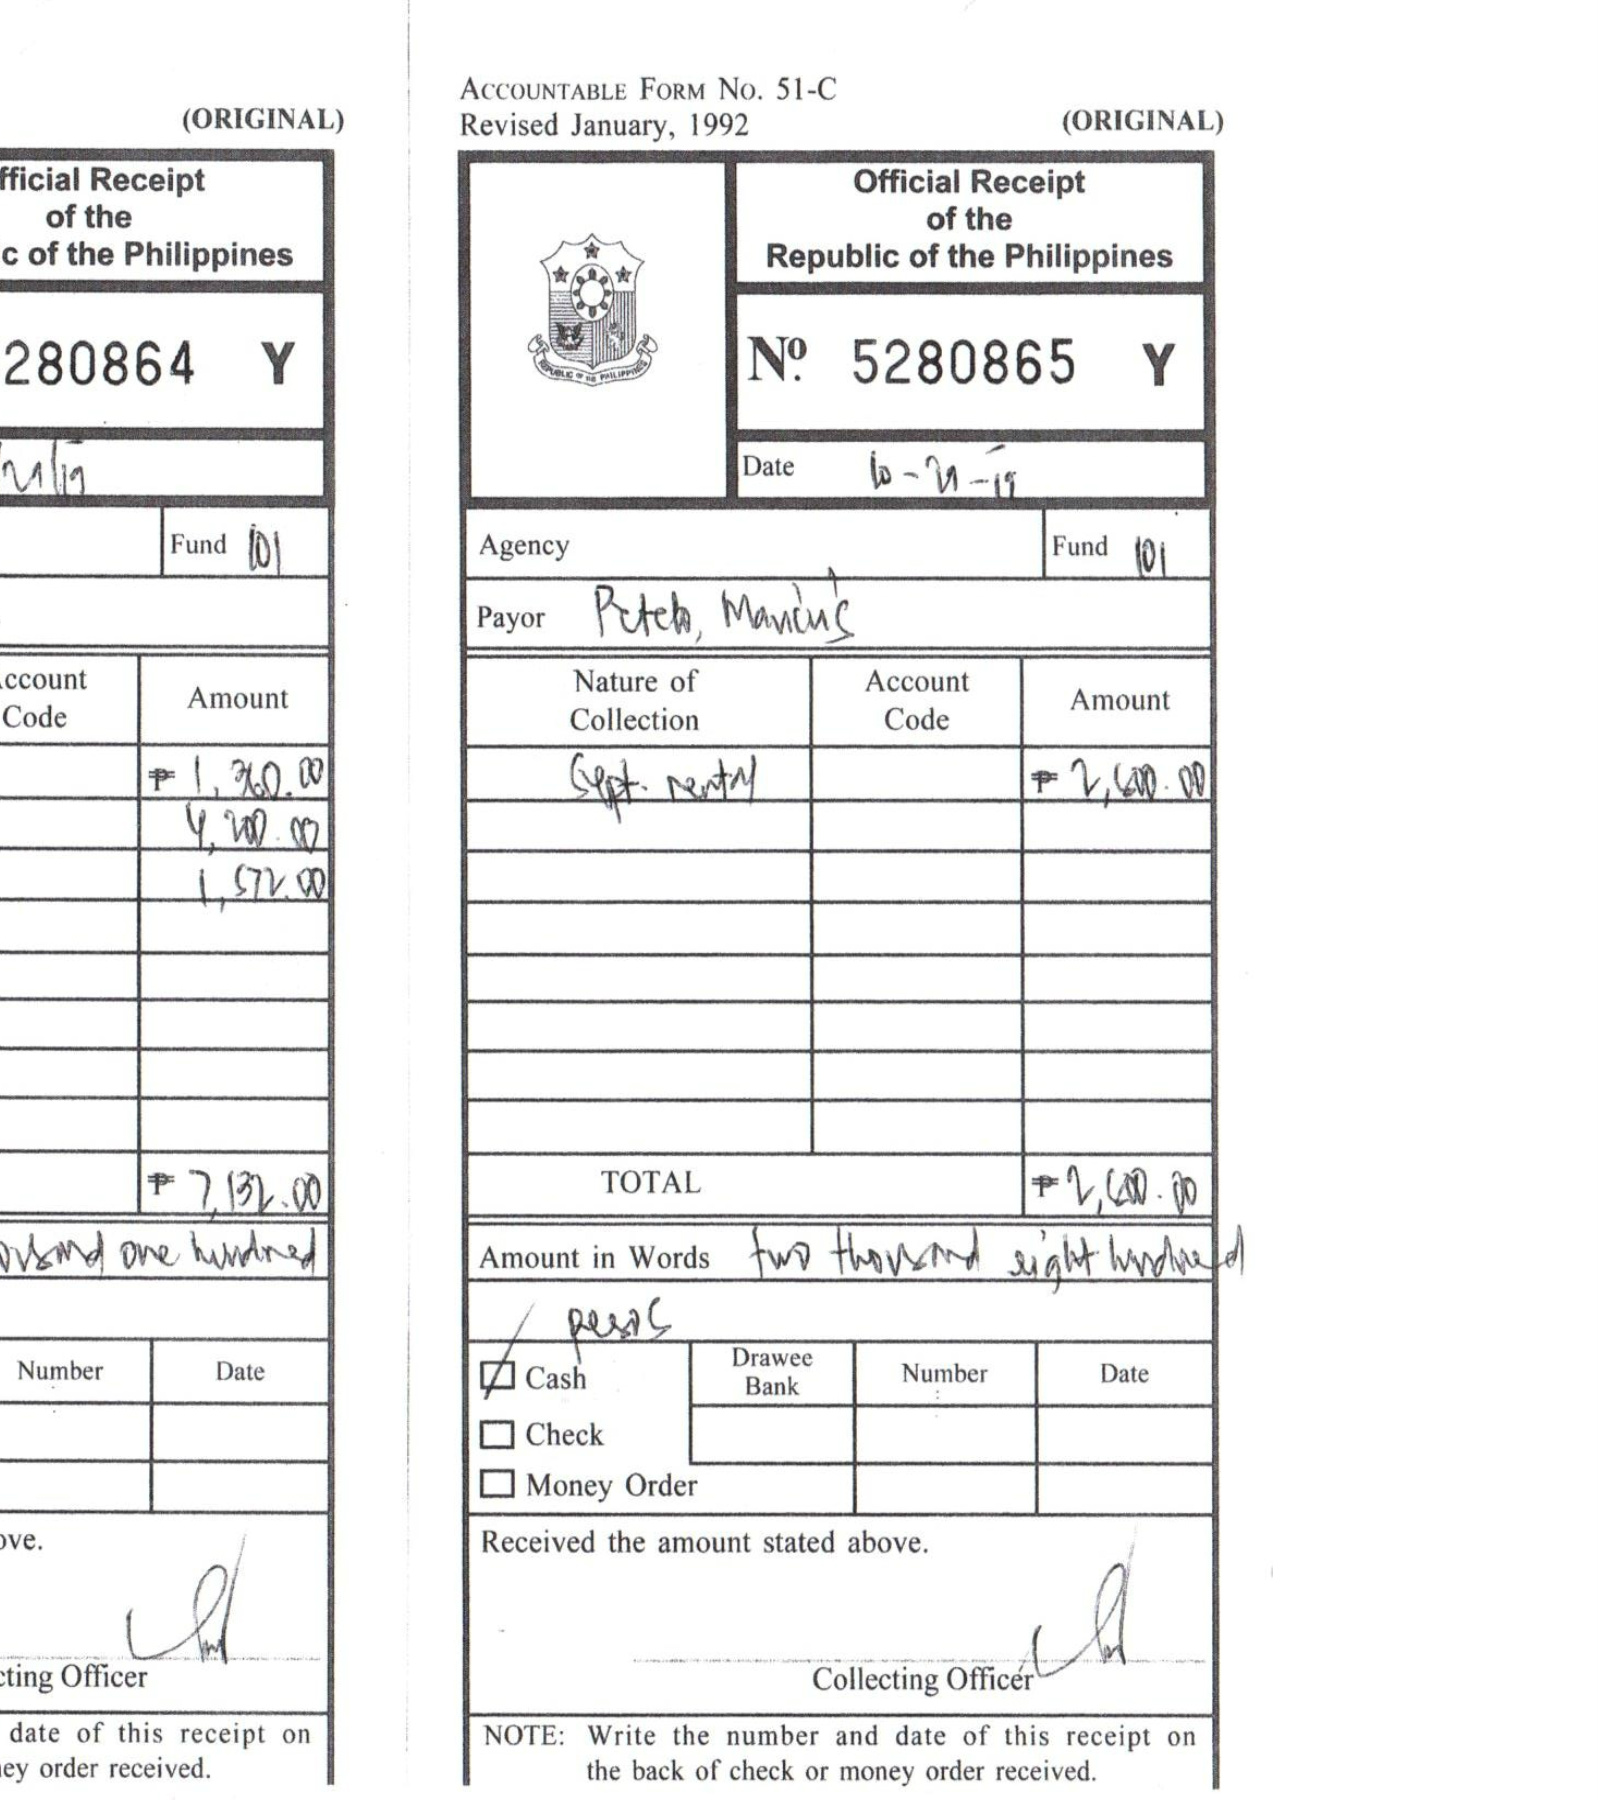 (ORIGINAL)
fficial Receipt
of the
c of the Philippines
280864 Y
/21/19
Fund 101
ccount
Code
Amount
₱ 1,360.00
4,200.00
1,572.00
₱ 7,132.00
ousand one hundred
Number
Date
ove.
cting Officer
date of this receipt on
ney order received.
ACCOUNTABLE FORM NO. 51-C
Revised January, 1992
(ORIGINAL)
REPUBLIC OF THE PHILIPPINES
Official Receipt
of the
Republic of the Philippines
Nº 5280865 Y
Date 10-21-19
Agency
Fund 101
Payor
Nature of
Collection
Account
Code
Amount
Sept. rental
₱ 2,600.00
TOTAL
₱ 2,600.00
Amount in Words two thousand eight hundred
pesos
Cash
Check
Money Order
Drawee
Bank
Number
Date
Received the amount stated above.
Collecting Officer
NOTE: Write the number and date of this receipt on
the back of check or money order received.